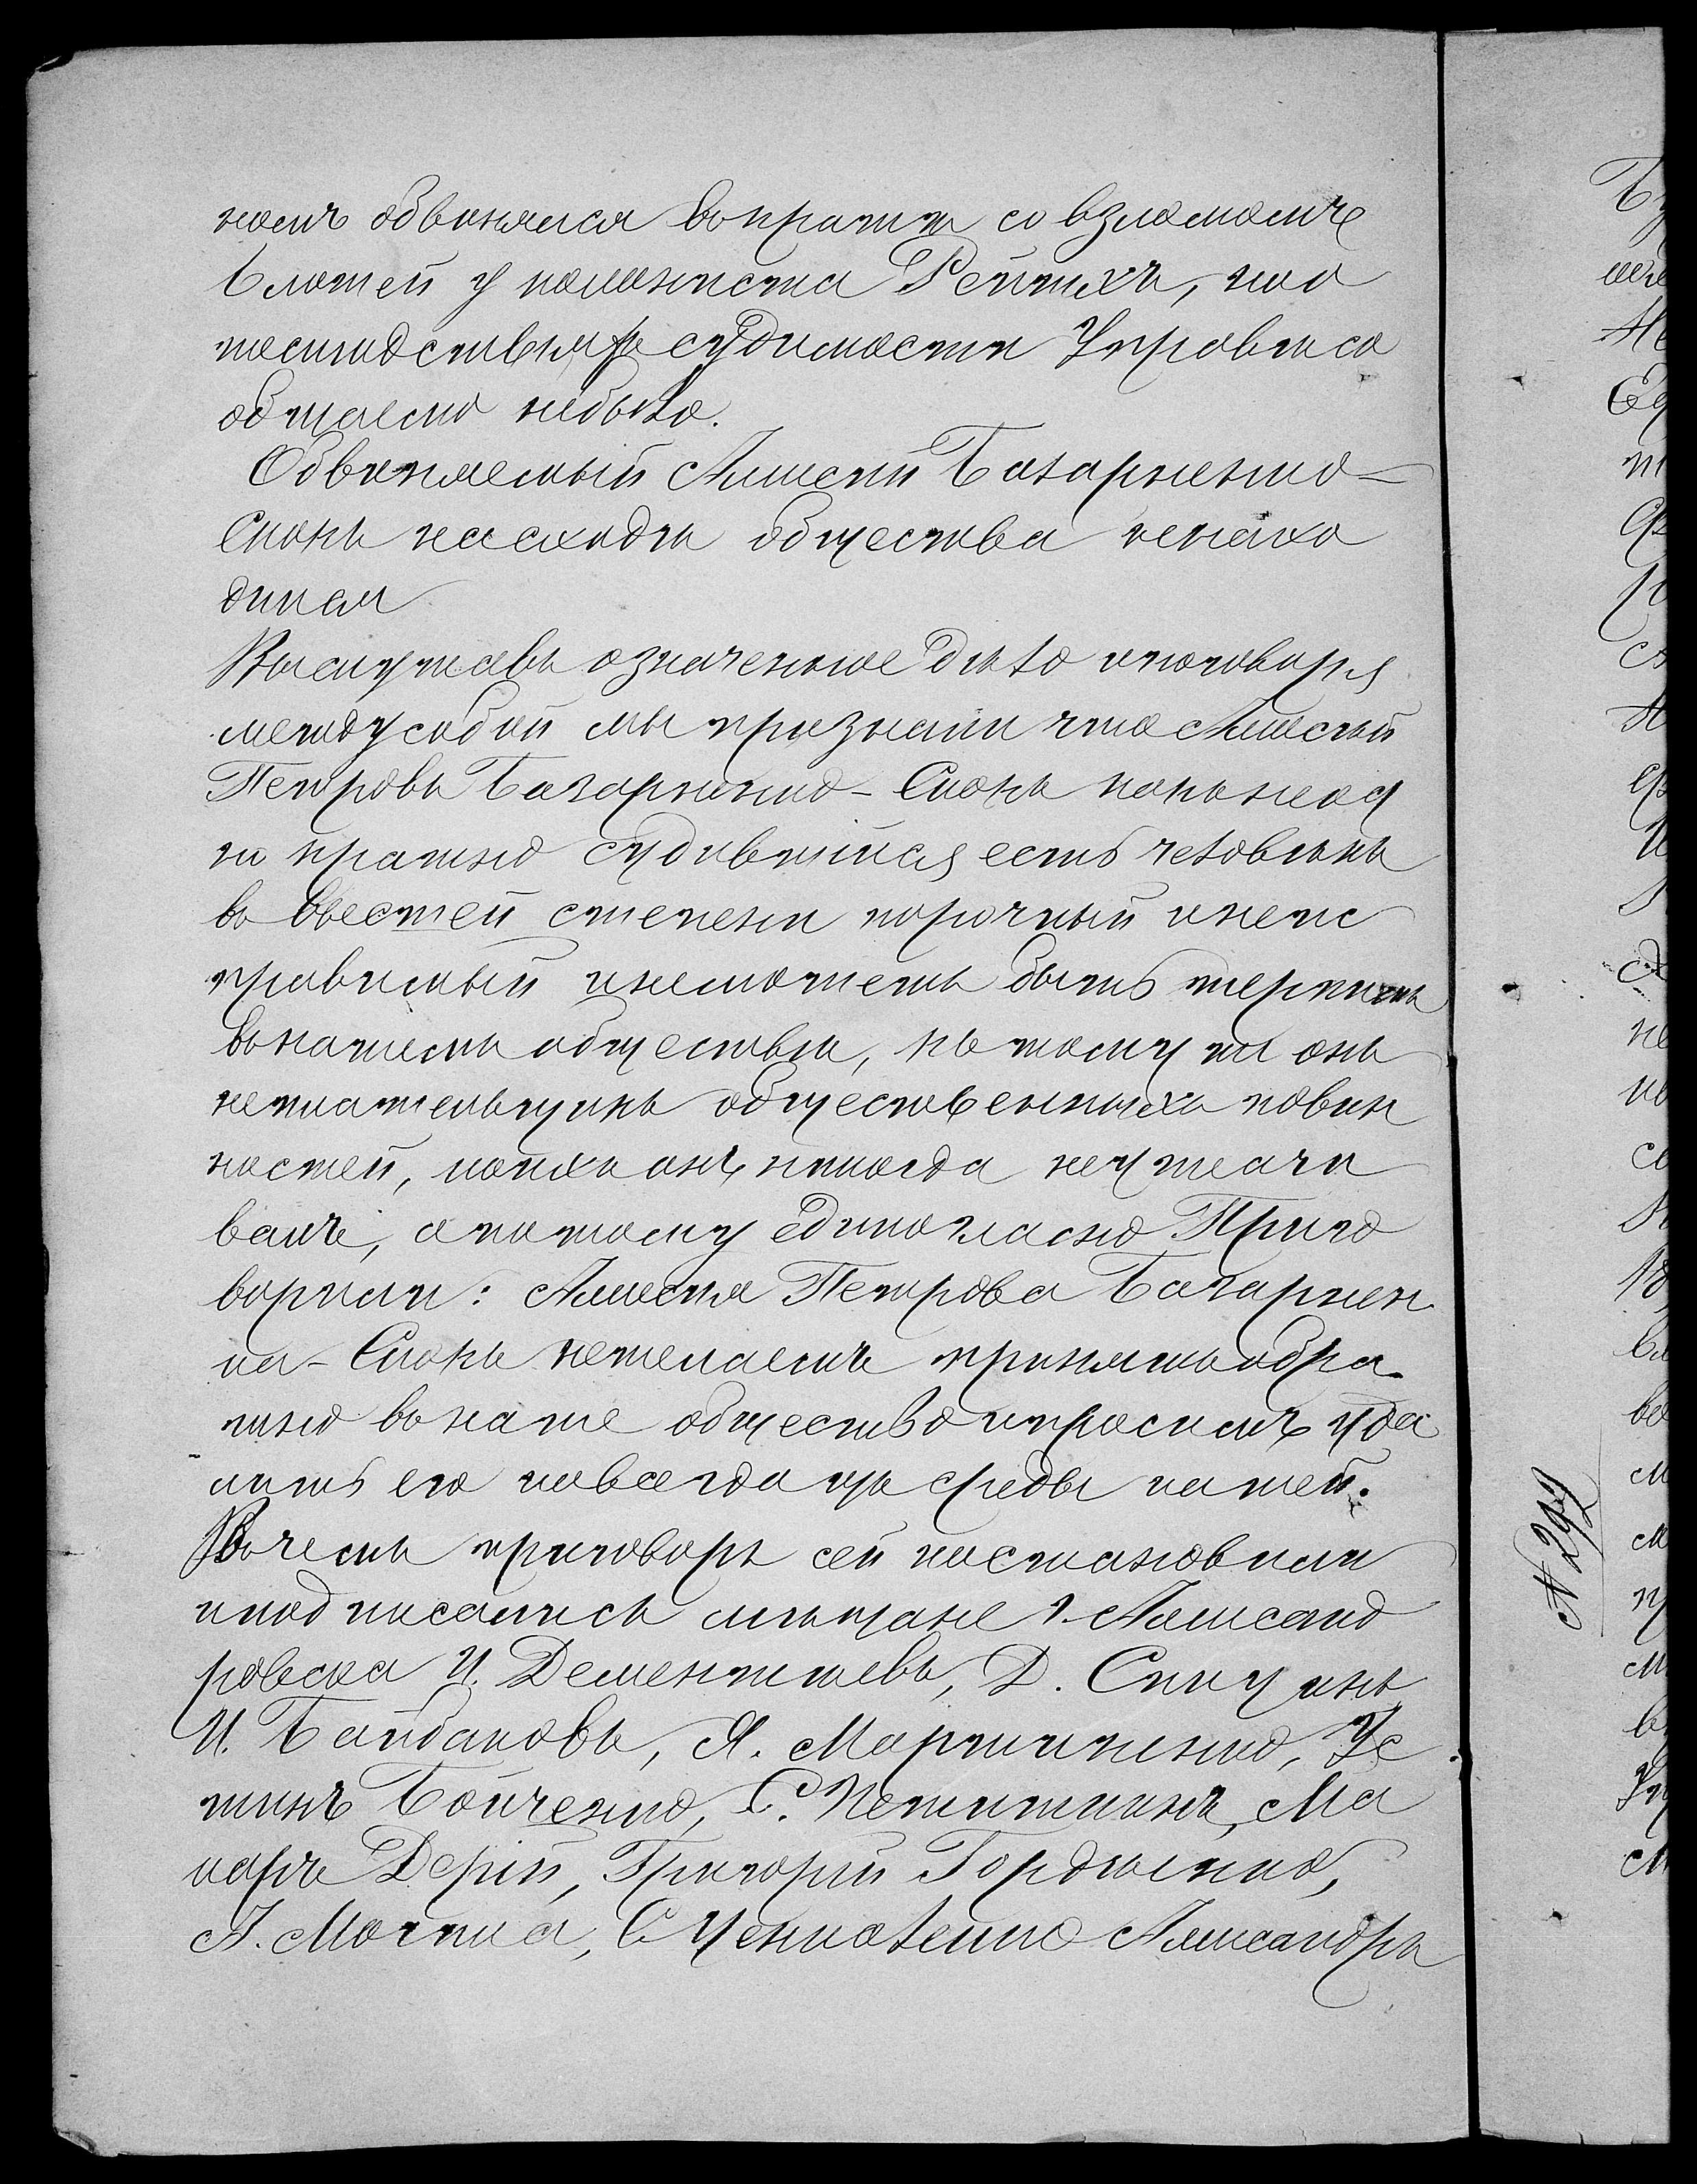 номъ обвинялся въ кражѣ со взломомъ
вѣщей у колониста Реймхъ, но о
последствіяхъ судимости Управѣ со
общаемо небыло.
Обвиняемый Алексѣй Базарненко-
Снопъ на сходѣ общества ненахо
дился
Выслушавъ означеное дѣло и поговоря
между собой мы признали что Алексѣй
Петровъ Базарненко-Снопъ какъ неод
но кратно судившійся есть человѣкъ
въ высшей степени порочный и неис
правимый и неможетъ быть терпимъ
въ нашемъ обществѣ, къ тому же онъ
неплательщикъ общественныхъ повин
ностей, коихъ онъ никогда неуплачи
валъ, а потому единогласно Приго
ворили: Алексѣя Петрова Базарнен
ка-Снопъ нежелаемъ принять обра-
тно въ наше общество и просимъ уда
лить его навсегда изъ среды нашей.
Въ чемъ приговоръ сей постановили
и подписались мѣщане г. Александ
ровска И. Дементьевъ, Д. Спицинъ
И. Байбаковъ, Я. Мартыненко, Ус
тинъ Бойченко, С. Метишкинъ, Ма
каръ Дерій, Григорій Гордіенко,
І. Мочпа, С Ценколенко Александръ
№ 292